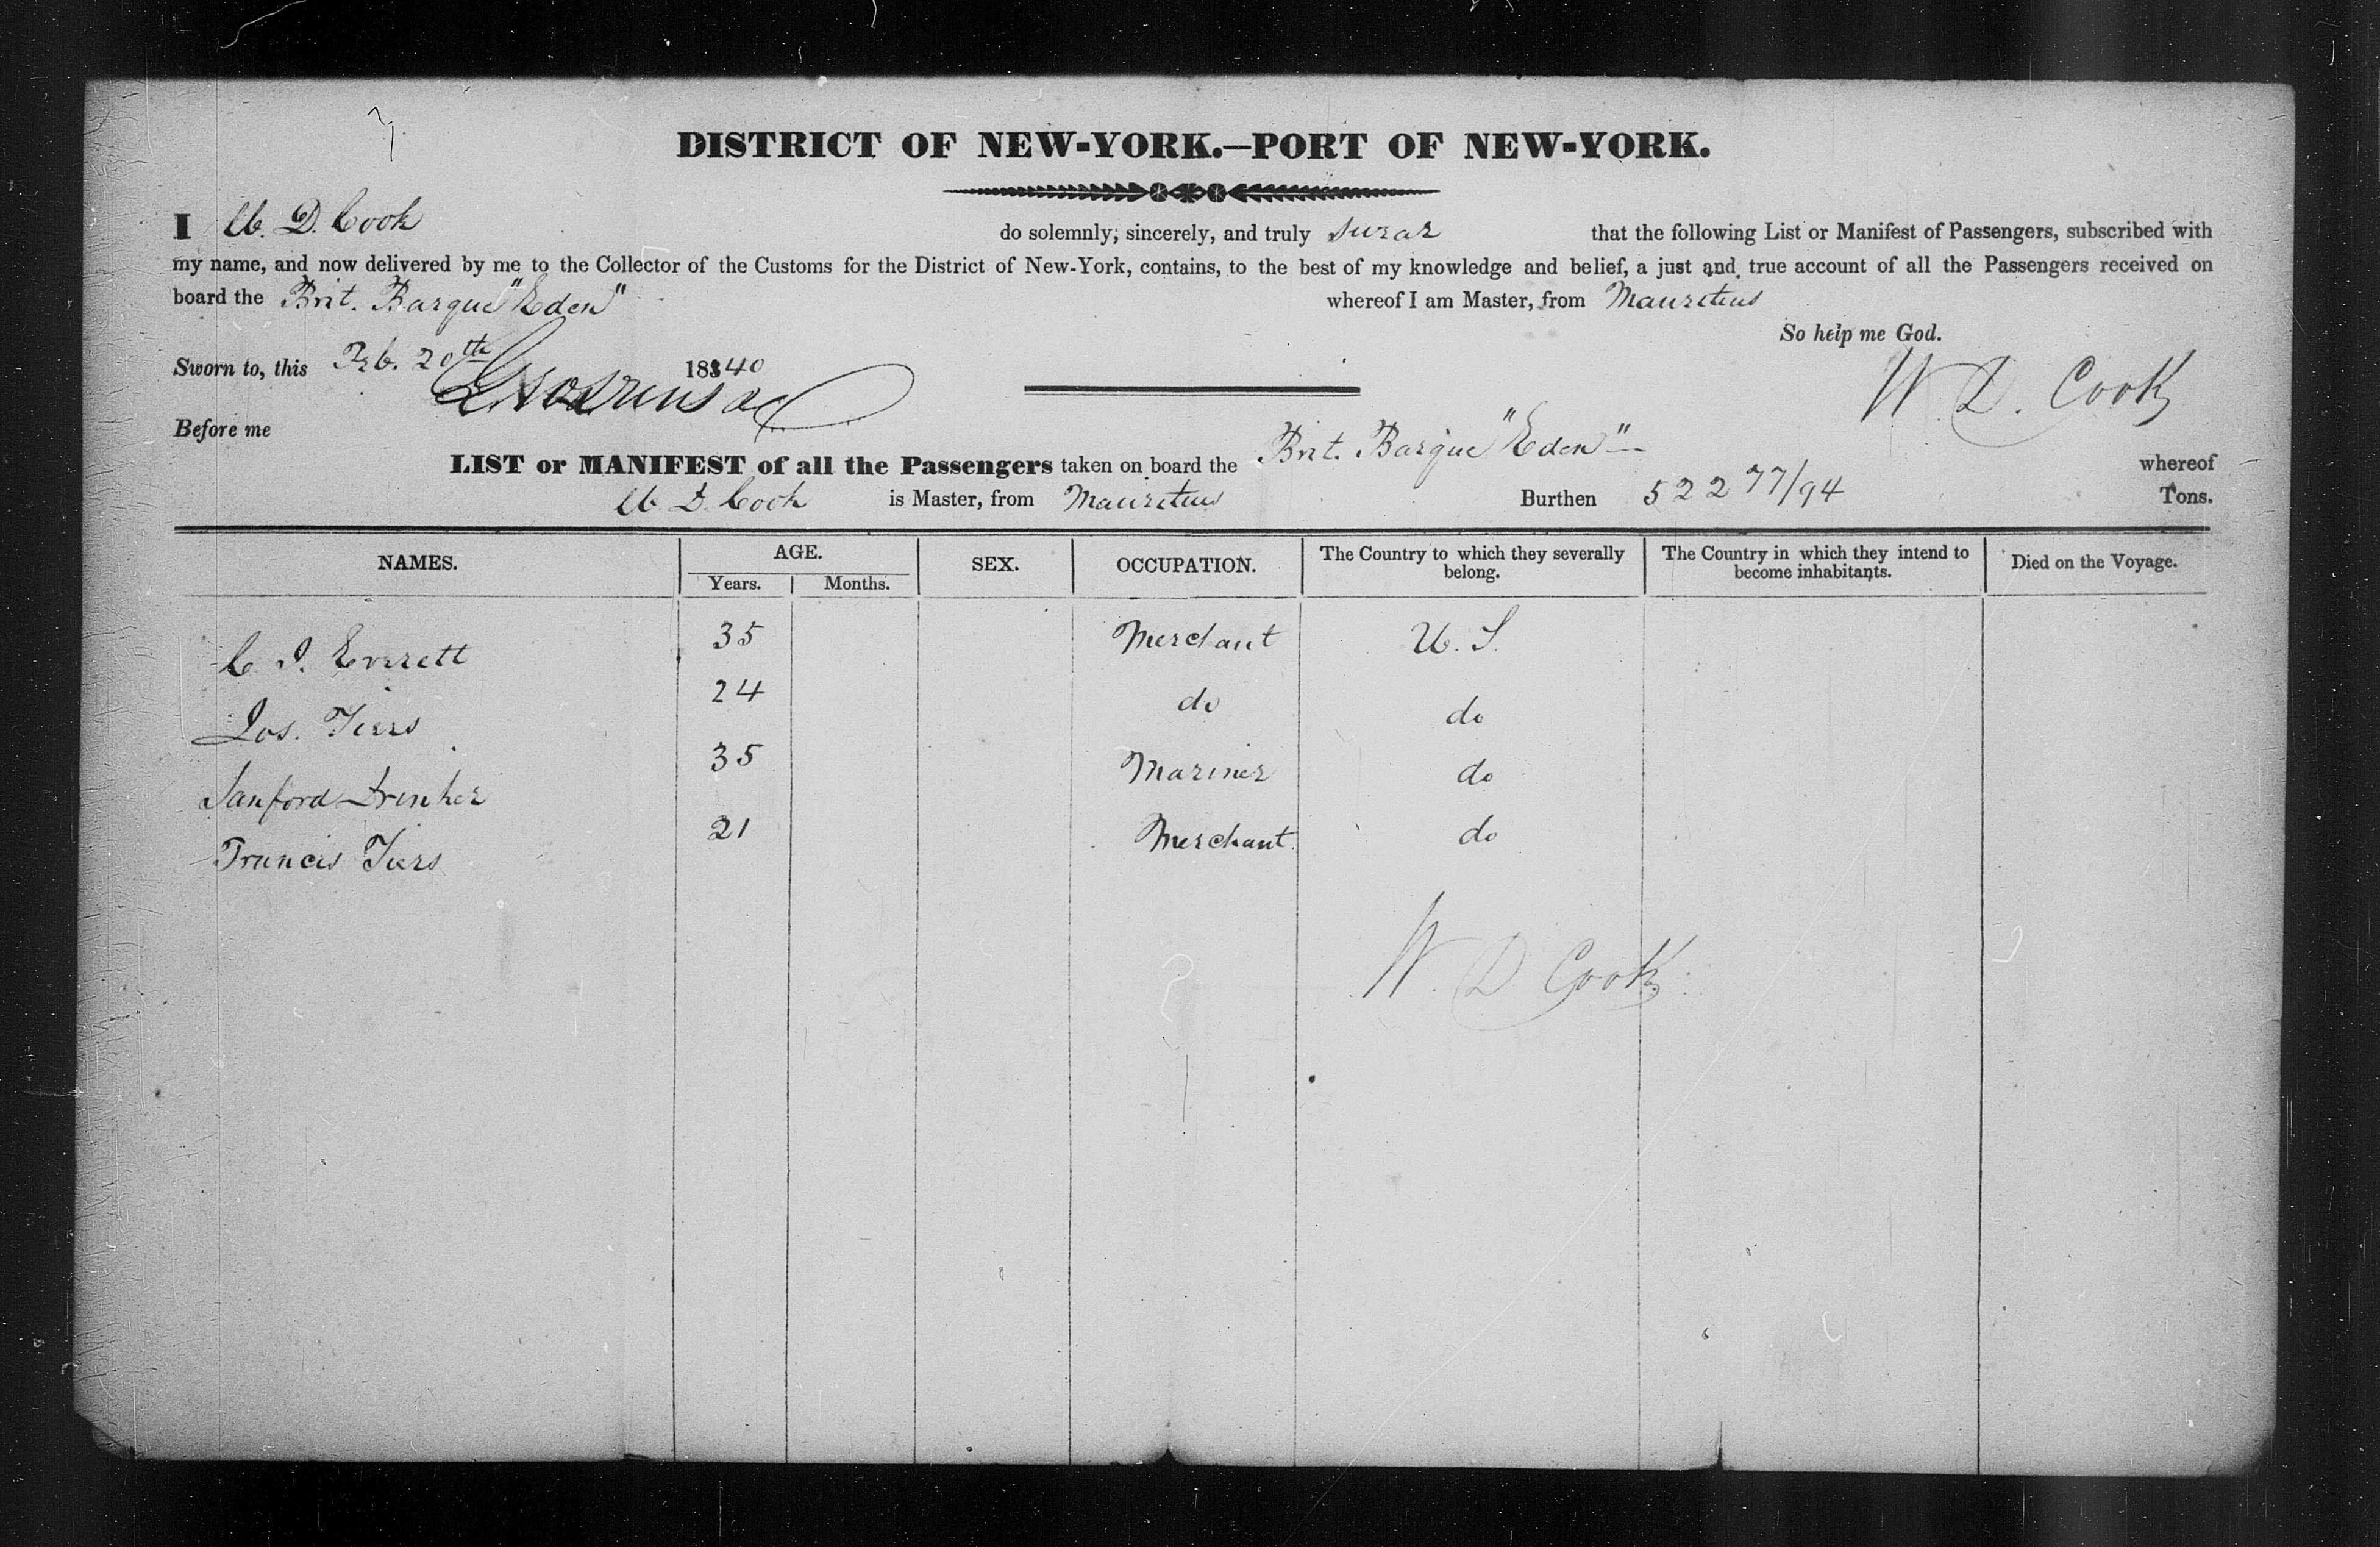 DISTRICT OF NEW-YORK.—PORT OF NEW-YORK.
I W. D. Cook do solemnly, sincerely, and truly swear that the following List or Manifest of Passengers, subscribed with
my name, and now delivered by me to the Collector of the Customs for the District of New-York, contains, to the best of my knowledge and belief, a just and true account of all the Passengers received on
board the Brit. Barque "Eden" whereof I am Master, from Mauritius
So help me God.
Sworn to, this Feb. 20th 18340
W. D. Cook
Before me
LIST or MANIFEST of all the Passengers taken on board the Brit. Barque "Eden" — whereof
W. D. Cook is Master, from Mauritius Burthen 522 77/94 Tons.
NAMES. AGE. SEX. OCCUPATION. The Country to which they severally belong. The Country in which they intend to become inhabitants. Died on the Voyage.
Years. Months.
C. J. Everett 35 Merchant U. S.
Jos. Tiers 24 do do
Sanford Drinker 35 Mariner do
Francis Tiers 21 Merchant do
W. D. Cook